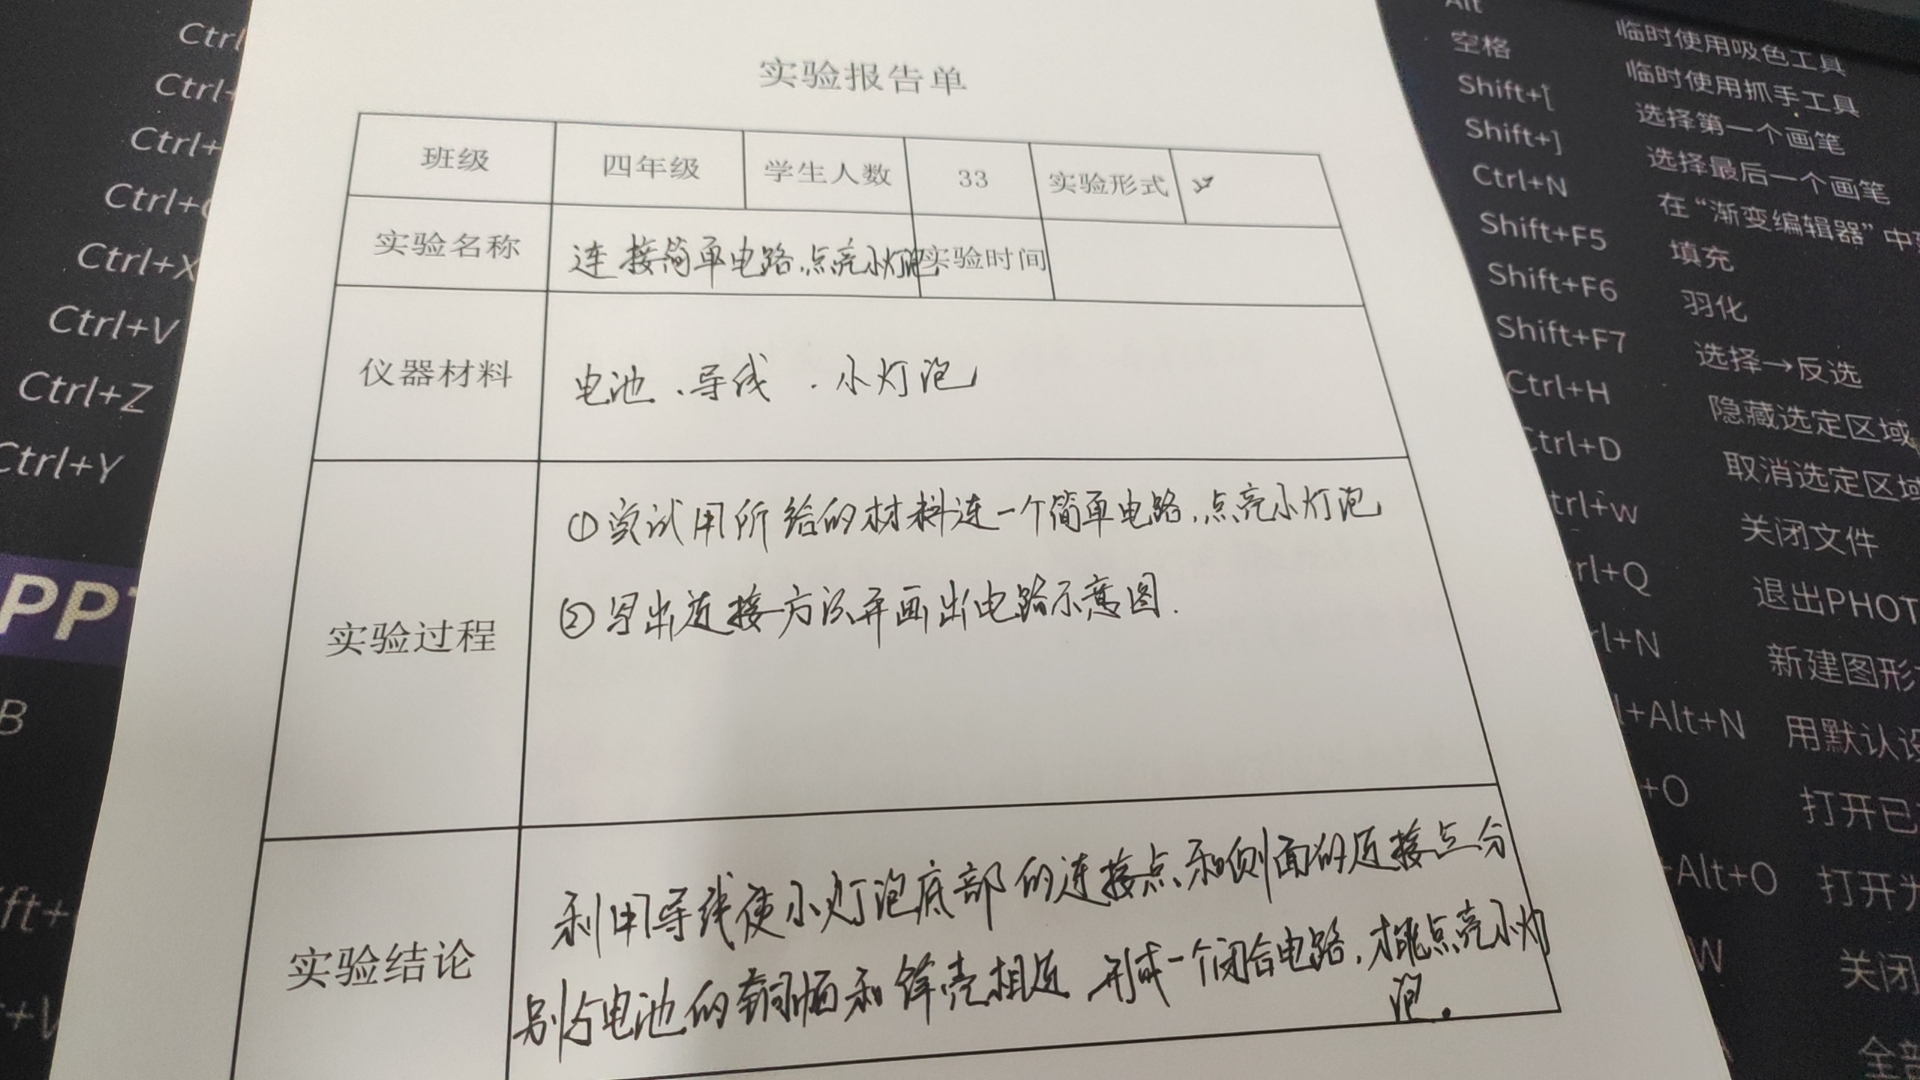 实验报告单
班级 四年级 学生人数 33 实验形式
实验名称 连接简单电路,点亮小灯泡 实验时间
仪器材料 电池、导线、小灯泡
①尝试用所给的材料连一个简单电路,点亮小灯泡
②写出连接方法并画出电路示意图.
实验过程
利用导线使小灯泡底部的连接点和侧面的连接点分
别与电池的铜帽和锌壳相连,形成一个闭合电路,才能点亮小灯
泡.
实验结论
Ctrl+X
Ctrl+V
Ctrl+Z
Ctrl+Y
PPT
B
Alt
空格 临时使用吸色工具
Shift+[ 临时使用抓手工具
Shift+] 选择第一个画笔
Ctrl+N 选择最后一个画笔
Shift+F5 在“渐变编辑器”中
Shift+F6 填充
Shift+F7 羽化
Ctrl+H 选择→反选
Ctrl+D 隐藏选定区域
trl+w 取消选定区域
rl+Q 关闭文件
rl+N 退出PHOT
l+Alt+N 新建图形
+O 用默认设
+Alt+O 打开已
W 打开为
关闭
全部